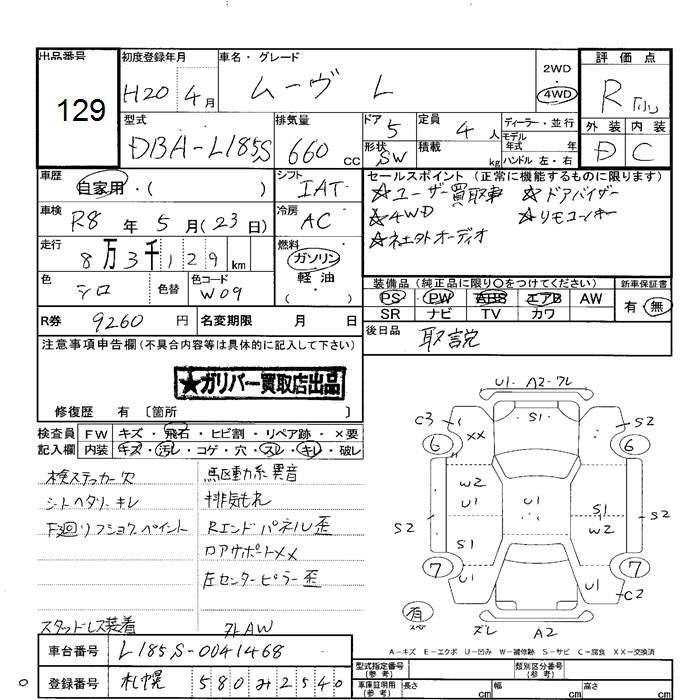 出品番号 初度登録年月 車名・グレード 評価点
129
H20 4月 ムーヴ L
2WD
4WD
R
外装 内装
D C
型式 排気量 ドア 定員 ディーラー・並行
DBA-L185S 660cc 5 4人
モデル年式 年
形状 SW 積載 kg ハンドル 左・右
車歴 自家用・( )
シフト IAT
セールスポイント(正常に機能するものに限ります)
☆ユーザー買取車 ☆ドアバイザー
☆4WD ☆リモコンキー
☆社外オーディオ
車検 R8年 5月(23日)
冷房 AC
走行 8万3千129km
燃料 ガソリン 軽油 ( )
色 シロ 色替 色コード W09
装備品(純正品に限り○をつけてください) 新車保証書
PS PW ABS エアB AW 有・無
SR ナビ TV カワ
R券 9260円 名変期限 月 日
後日品 取説
注意事項申告欄(不具合内容等は具体的に記入して下さい)
★ガリバー買取店出品
修復歴 有〔箇所 〕
検査員 FW キズ・飛石・ヒビ割・リペア跡・×要
記入欄 内装 キズ・汚レ・コゲ・穴・スレ・キレ・破レ
検ステッカー欠 駆動系異音
シートヘタリ・キレ 排気もれ
F廻リフショクペイント Rエンドパネル歪
ロアサポートXX
左センターピラー歪
スタッドレス装着 外AW
U1・A2・ワレ
C3 S1 S2
XX
6 6
W2 U1 U1 S1 W2
S2 S2
S1
7 7
U1 U1 C2
有
ズレ A2
A-キズ E-エクボ U-凹み W-補修跡 S-サビ C-腐食 XX-交換済
車台番号 L185S-0041468
登録番号 札幌 580 み 2540
型式指定番号(参考) 類別区分番号(参考)
車庫証明用(参考) 長さ cm 幅 cm 高さ cm